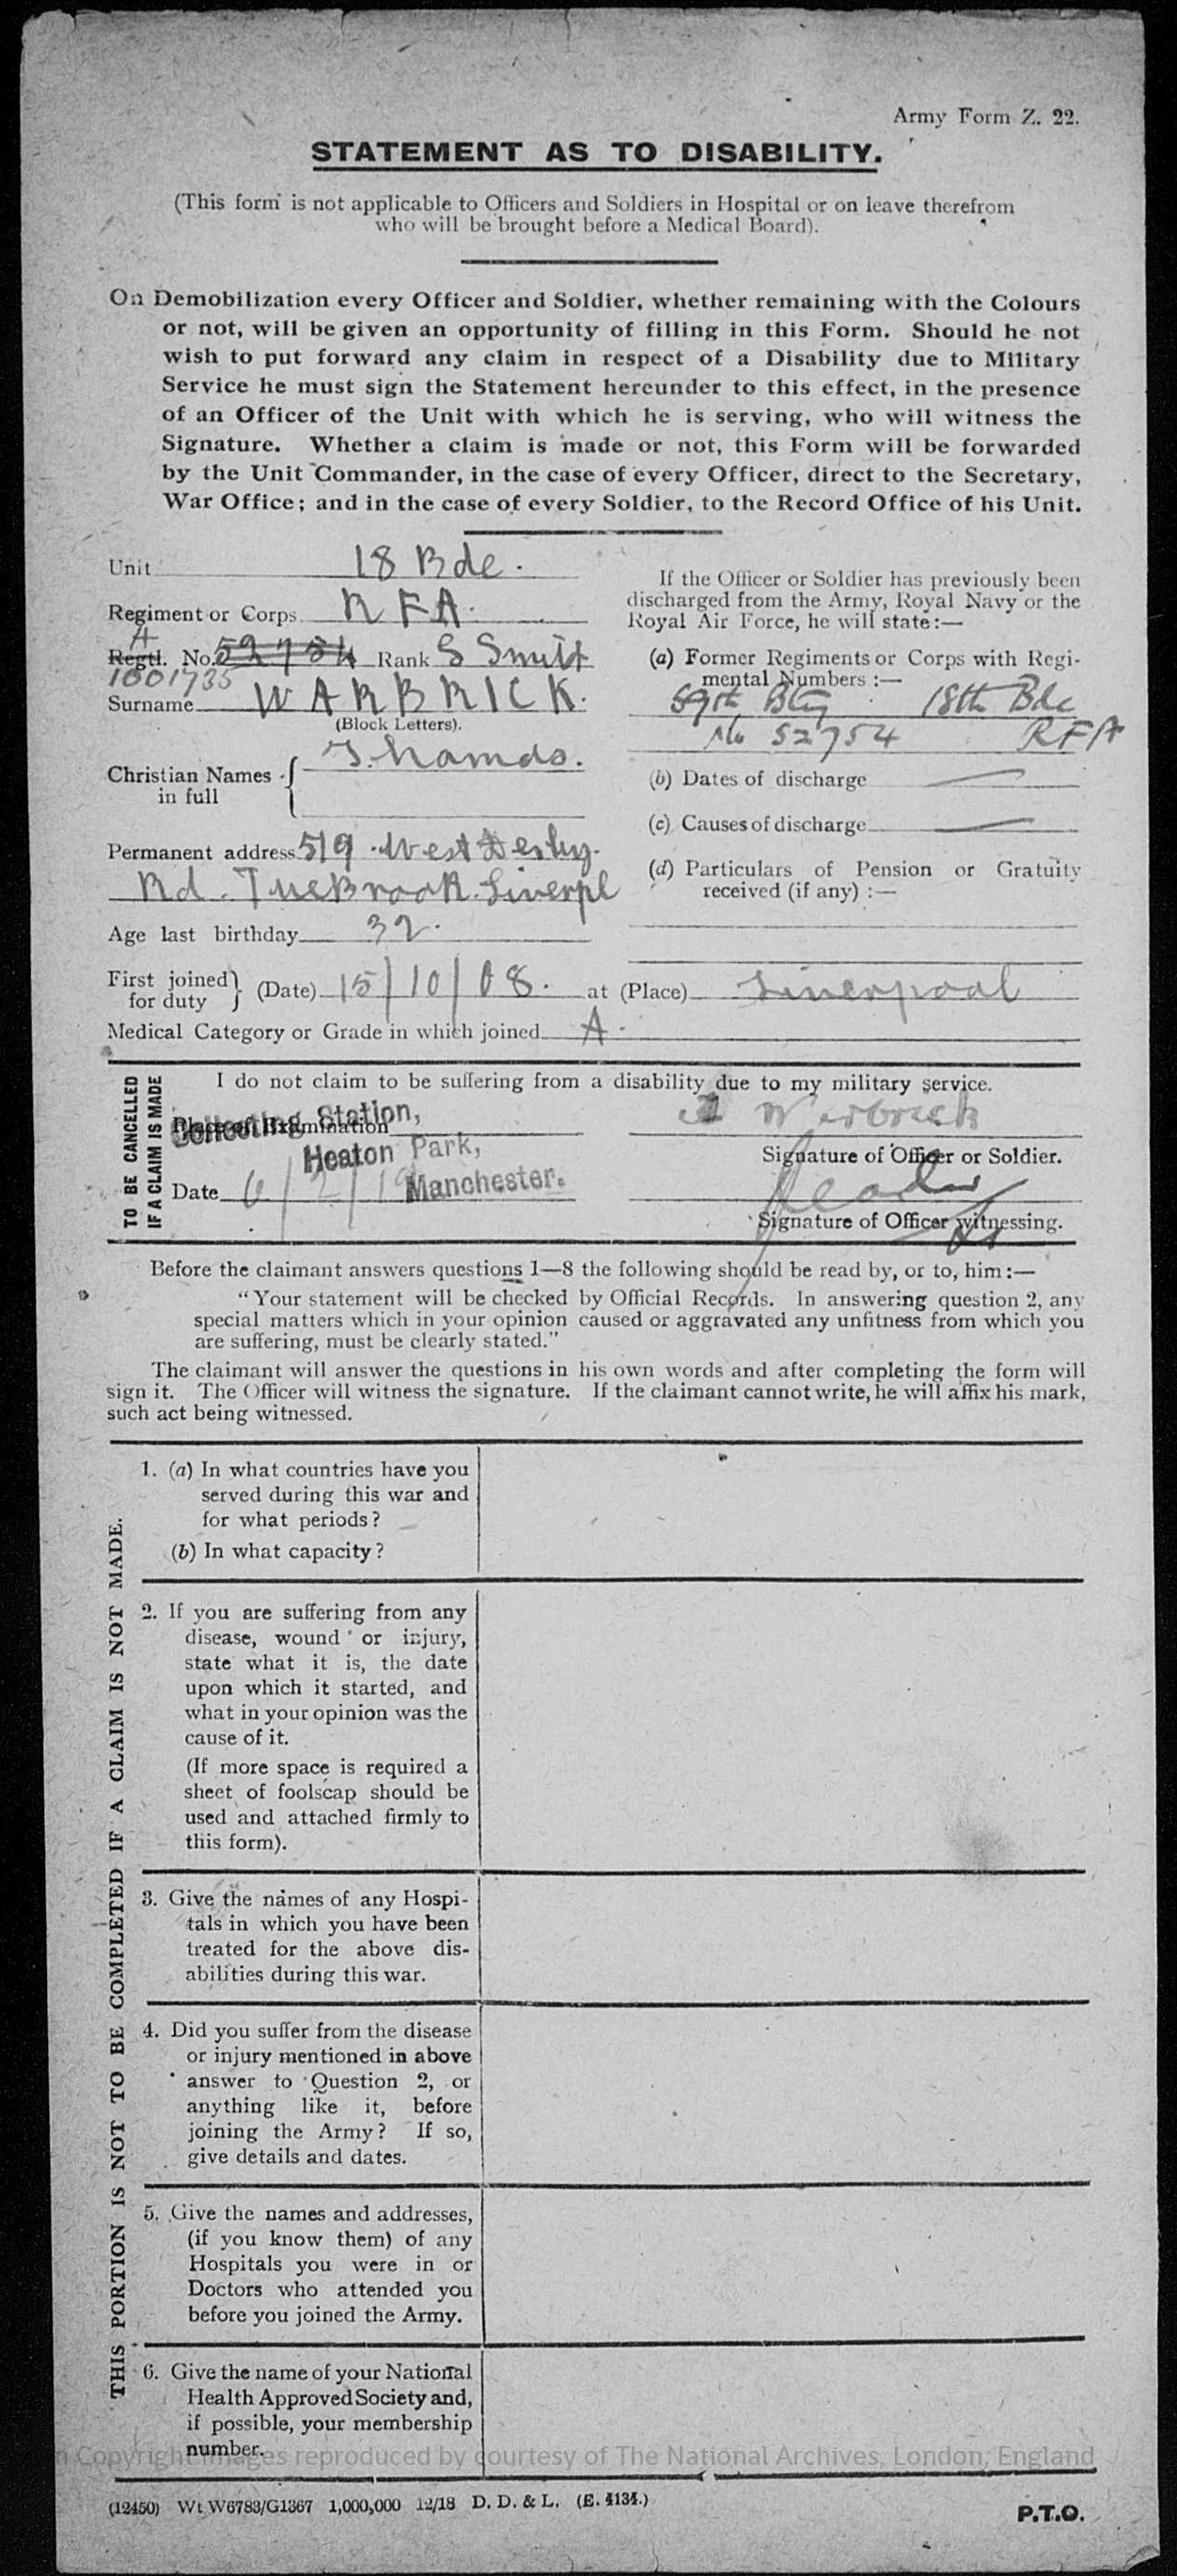 Army Form Z. 22.
STATEMENT AS TO DISABILITY.
(This form is not applicable to Officers and Soldiers in Hospital or on leave therefrom
who will be brought before a Medical Board).
On Demobilization every Officer and Soldier, whether remaining with the Colours
or not, will be given an opportunity of filling in this Form. Should he not
wish to put forward any claim in respect of a Disability due to Military
Service he must sign the Statement hereunder to this effect, in the presence
of an Officer of the Unit with which he is serving, who will witness the
Signature. Whether a claim is made or not, this Form will be forwarded
by the Unit Commander, in the case of every Officer, direct to the Secretary,
War Office; and in the case of every Soldier, to the Record Office of his Unit.
Unit 18 Bde.
Regiment or Corps RFA.
A
Regtl. No. 52754 Rank S Smith
1001735
Surname WARBRICK.
(Block Letters).
Christian Names in full Thomas.
Permanent address 519 West Derby.
Rd. TueBrook. Liverpl
Age last birthday 32.
If the Officer or Soldier has previously been
discharged from the Army, Royal Navy or the
Royal Air Force, he will state:—
(a) Former Regiments or Corps with Regi-
mental Numbers :—
59th Bty 18th Bde
No 52754 RFA
(b) Dates of discharge —
(c) Causes of discharge —
(d) Particulars of Pension or Gratuity
received (if any) :—
First joined for duty (Date) 15/10/08. at (Place) Liverpool
Medical Category or Grade in which joined A.
TO BE CANCELLED
IF A CLAIM IS MADE
I do not claim to be suffering from a disability due to my military service.
Place of Examination
Collecting Station,
Heaton Park,
Manchester.
Date 6/2/19
T Warbrick
Signature of Officer or Soldier.
Signature of Officer witnessing.
Before the claimant answers questions 1—8 the following should be read by, or to, him:—
"Your statement will be checked by Official Records. In answering question 2, any
special matters which in your opinion caused or aggravated any unfitness from which you
are suffering, must be clearly stated."
The claimant will answer the questions in his own words and after completing the form will
sign it. The Officer will witness the signature. If the claimant cannot write, he will affix his mark,
such act being witnessed.
THIS PORTION IS NOT TO BE COMPLETED IF A CLAIM IS NOT MADE.
1. (a) In what countries have you
served during this war and
for what periods?
(b) In what capacity?
2. If you are suffering from any
disease, wound or injury,
state what it is, the date
upon which it started, and
what in your opinion was the
cause of it.
(If more space is required a
sheet of foolscap should be
used and attached firmly to
this form).
3. Give the names of any Hospi-
tals in which you have been
treated for the above dis-
abilities during this war.
4. Did you suffer from the disease
or injury mentioned in above
answer to Question 2, or
anything like it, before
joining the Army? If so,
give details and dates.
5. Give the names and addresses,
(if you know them) of any
Hospitals you were in or
Doctors who attended you
before you joined the Army.
6. Give the name of your National
Health Approved Society and,
if possible, your membership
number.
Copyright images reproduced by courtesy of The National Archives, London, England
(12450) Wt. W6783/G1367 1,000,000 12/18 D. D. & L. (E. 4134.)
P.T.O.